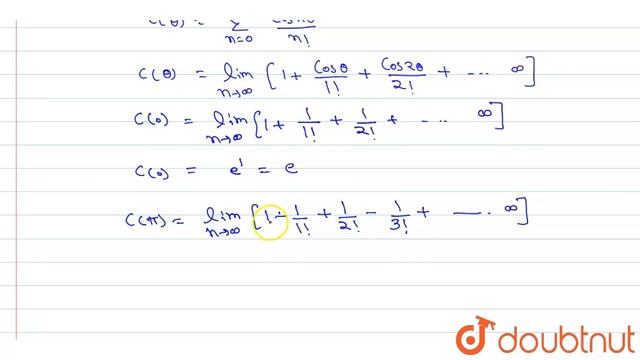 C(θ) = Σ n=0 cosnθ/n!
C(θ) = lim n→∞ [1 + Cosθ/1! + Cos2θ/2! + -- ... ∞]
C(0) = lim n→∞ [1 + 1/1! + 1/2! + -- ... ∞]
C(0) = e¹ = e
C(π) = lim n→∞ [1 - 1/1! + 1/2! - 1/3! + — ... ∞]
doubtnut